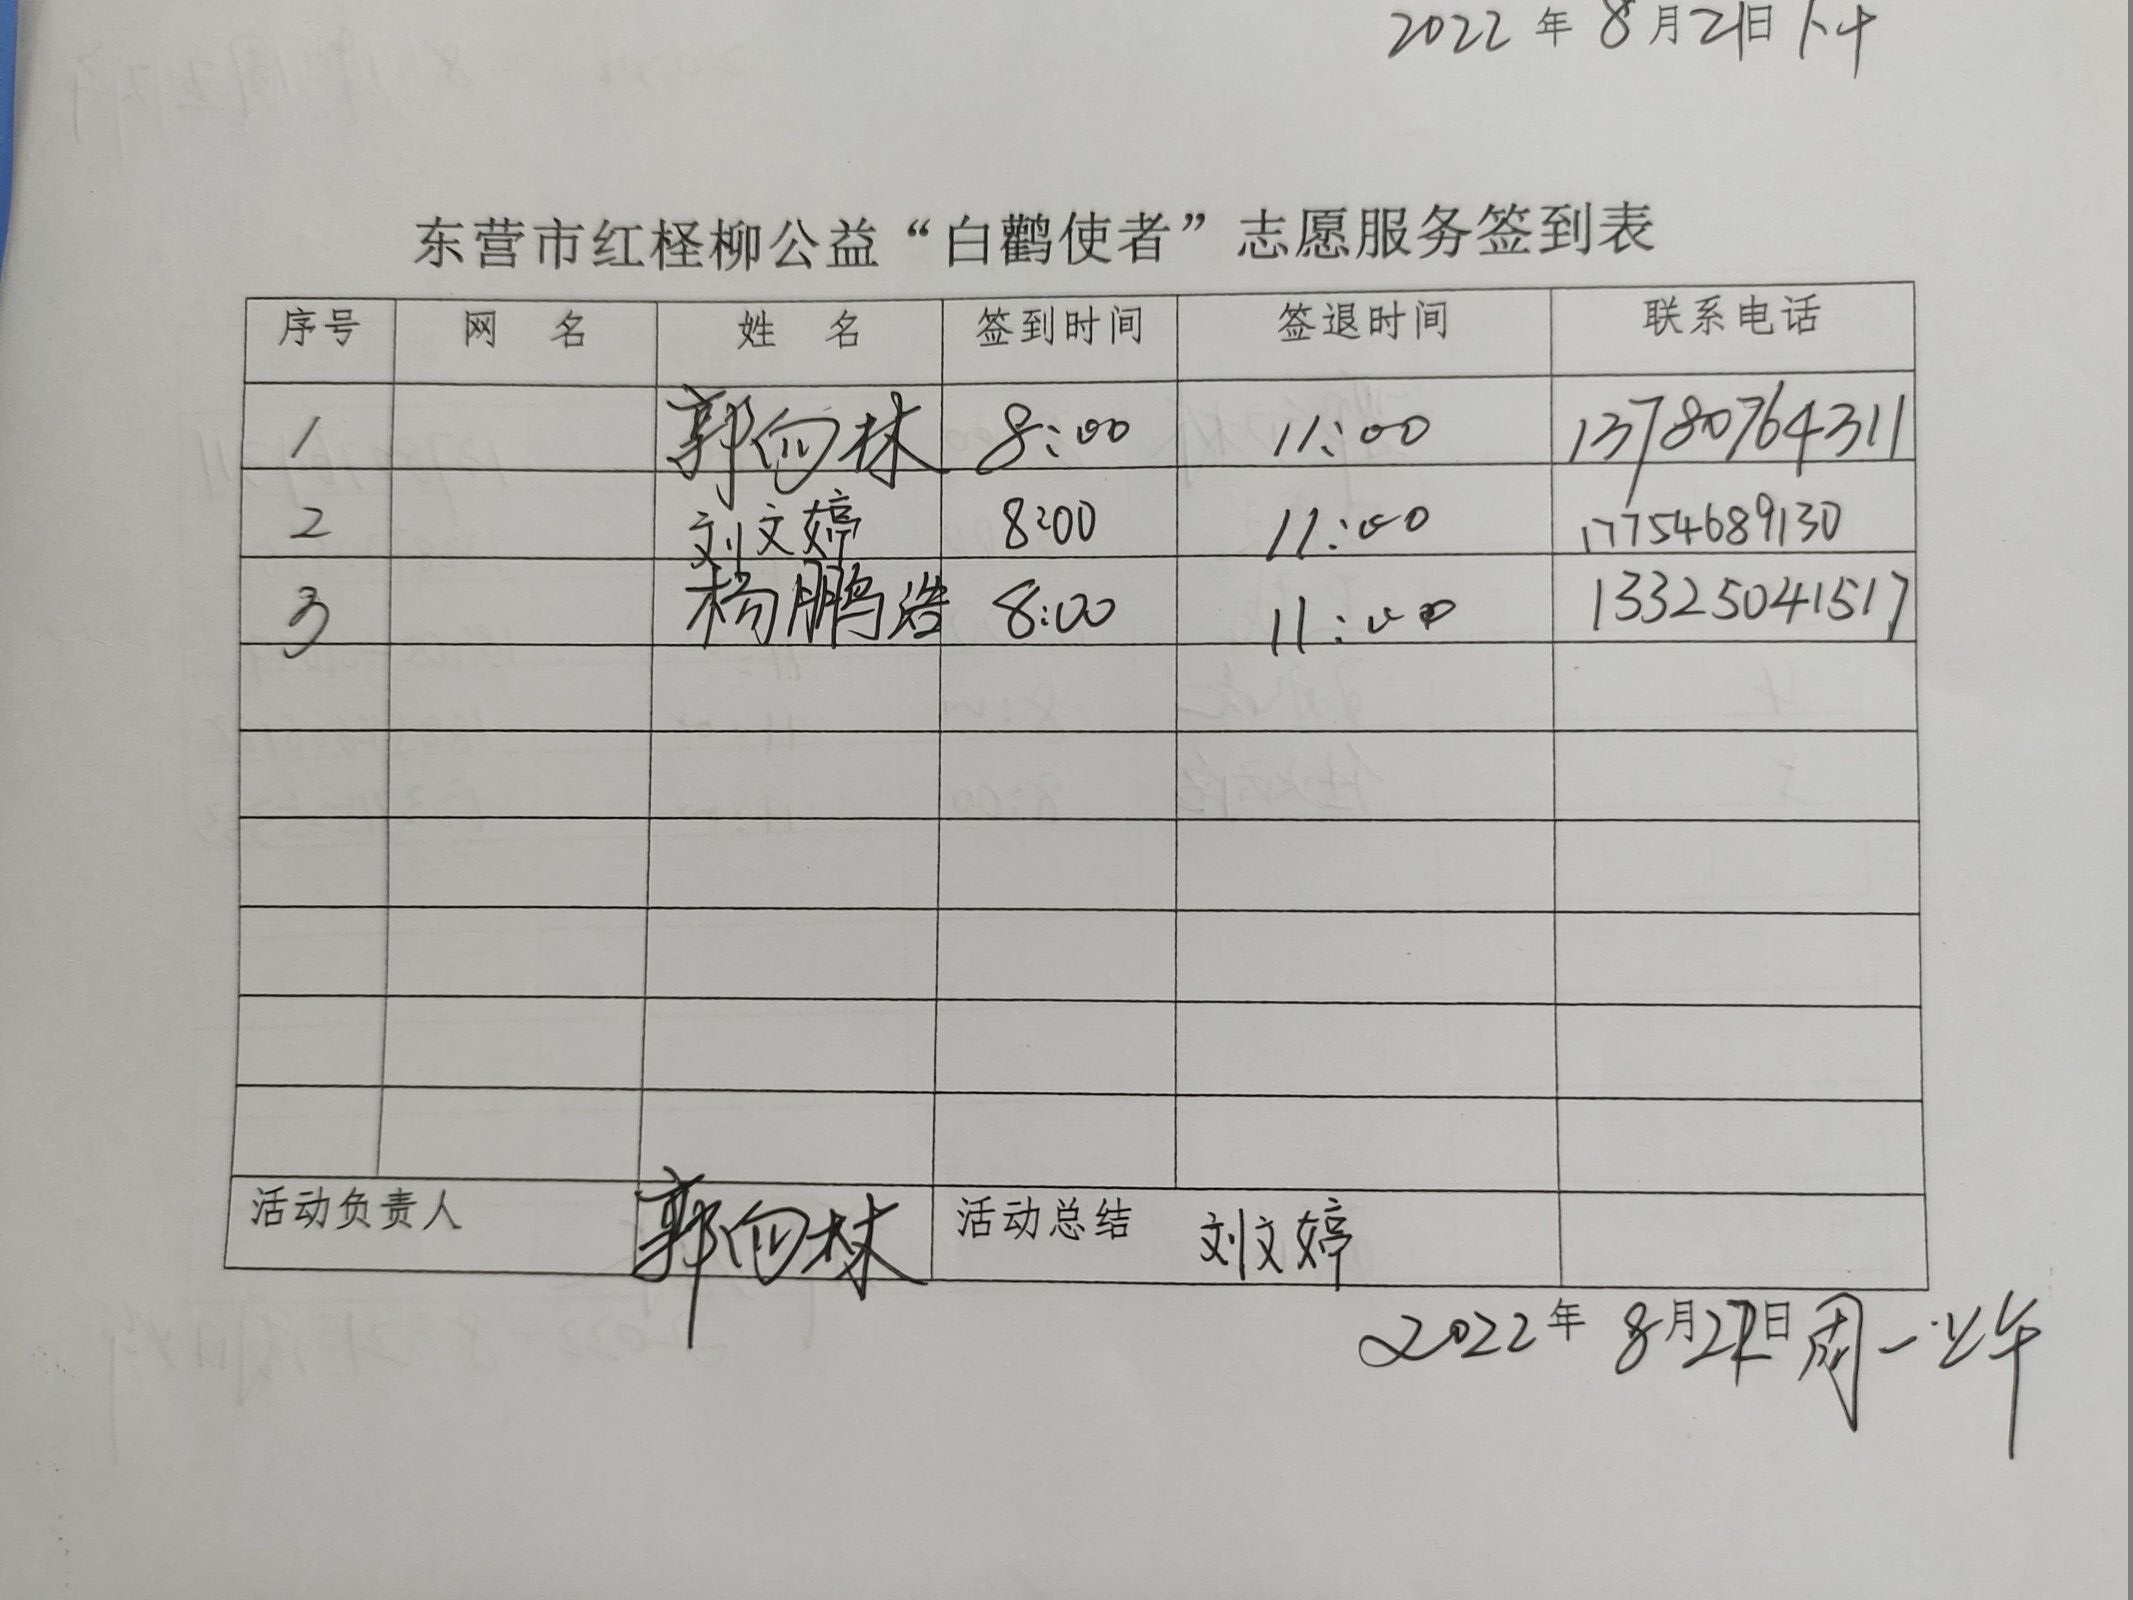 2022年8月21日下午
东营市红柽柳公益“白鹳使者”志愿服务签到表
序号 网 名 姓 名 签到时间 签退时间 联系电话
1 郭向林 8:00 11:00 13780764311
2 刘文婷 8:00 11:00 17754689130
3 杨鹏浩 8:00 11:00 13325041517
活动负责人 郭向林 活动总结 刘文婷
2022年8月22日周一上午